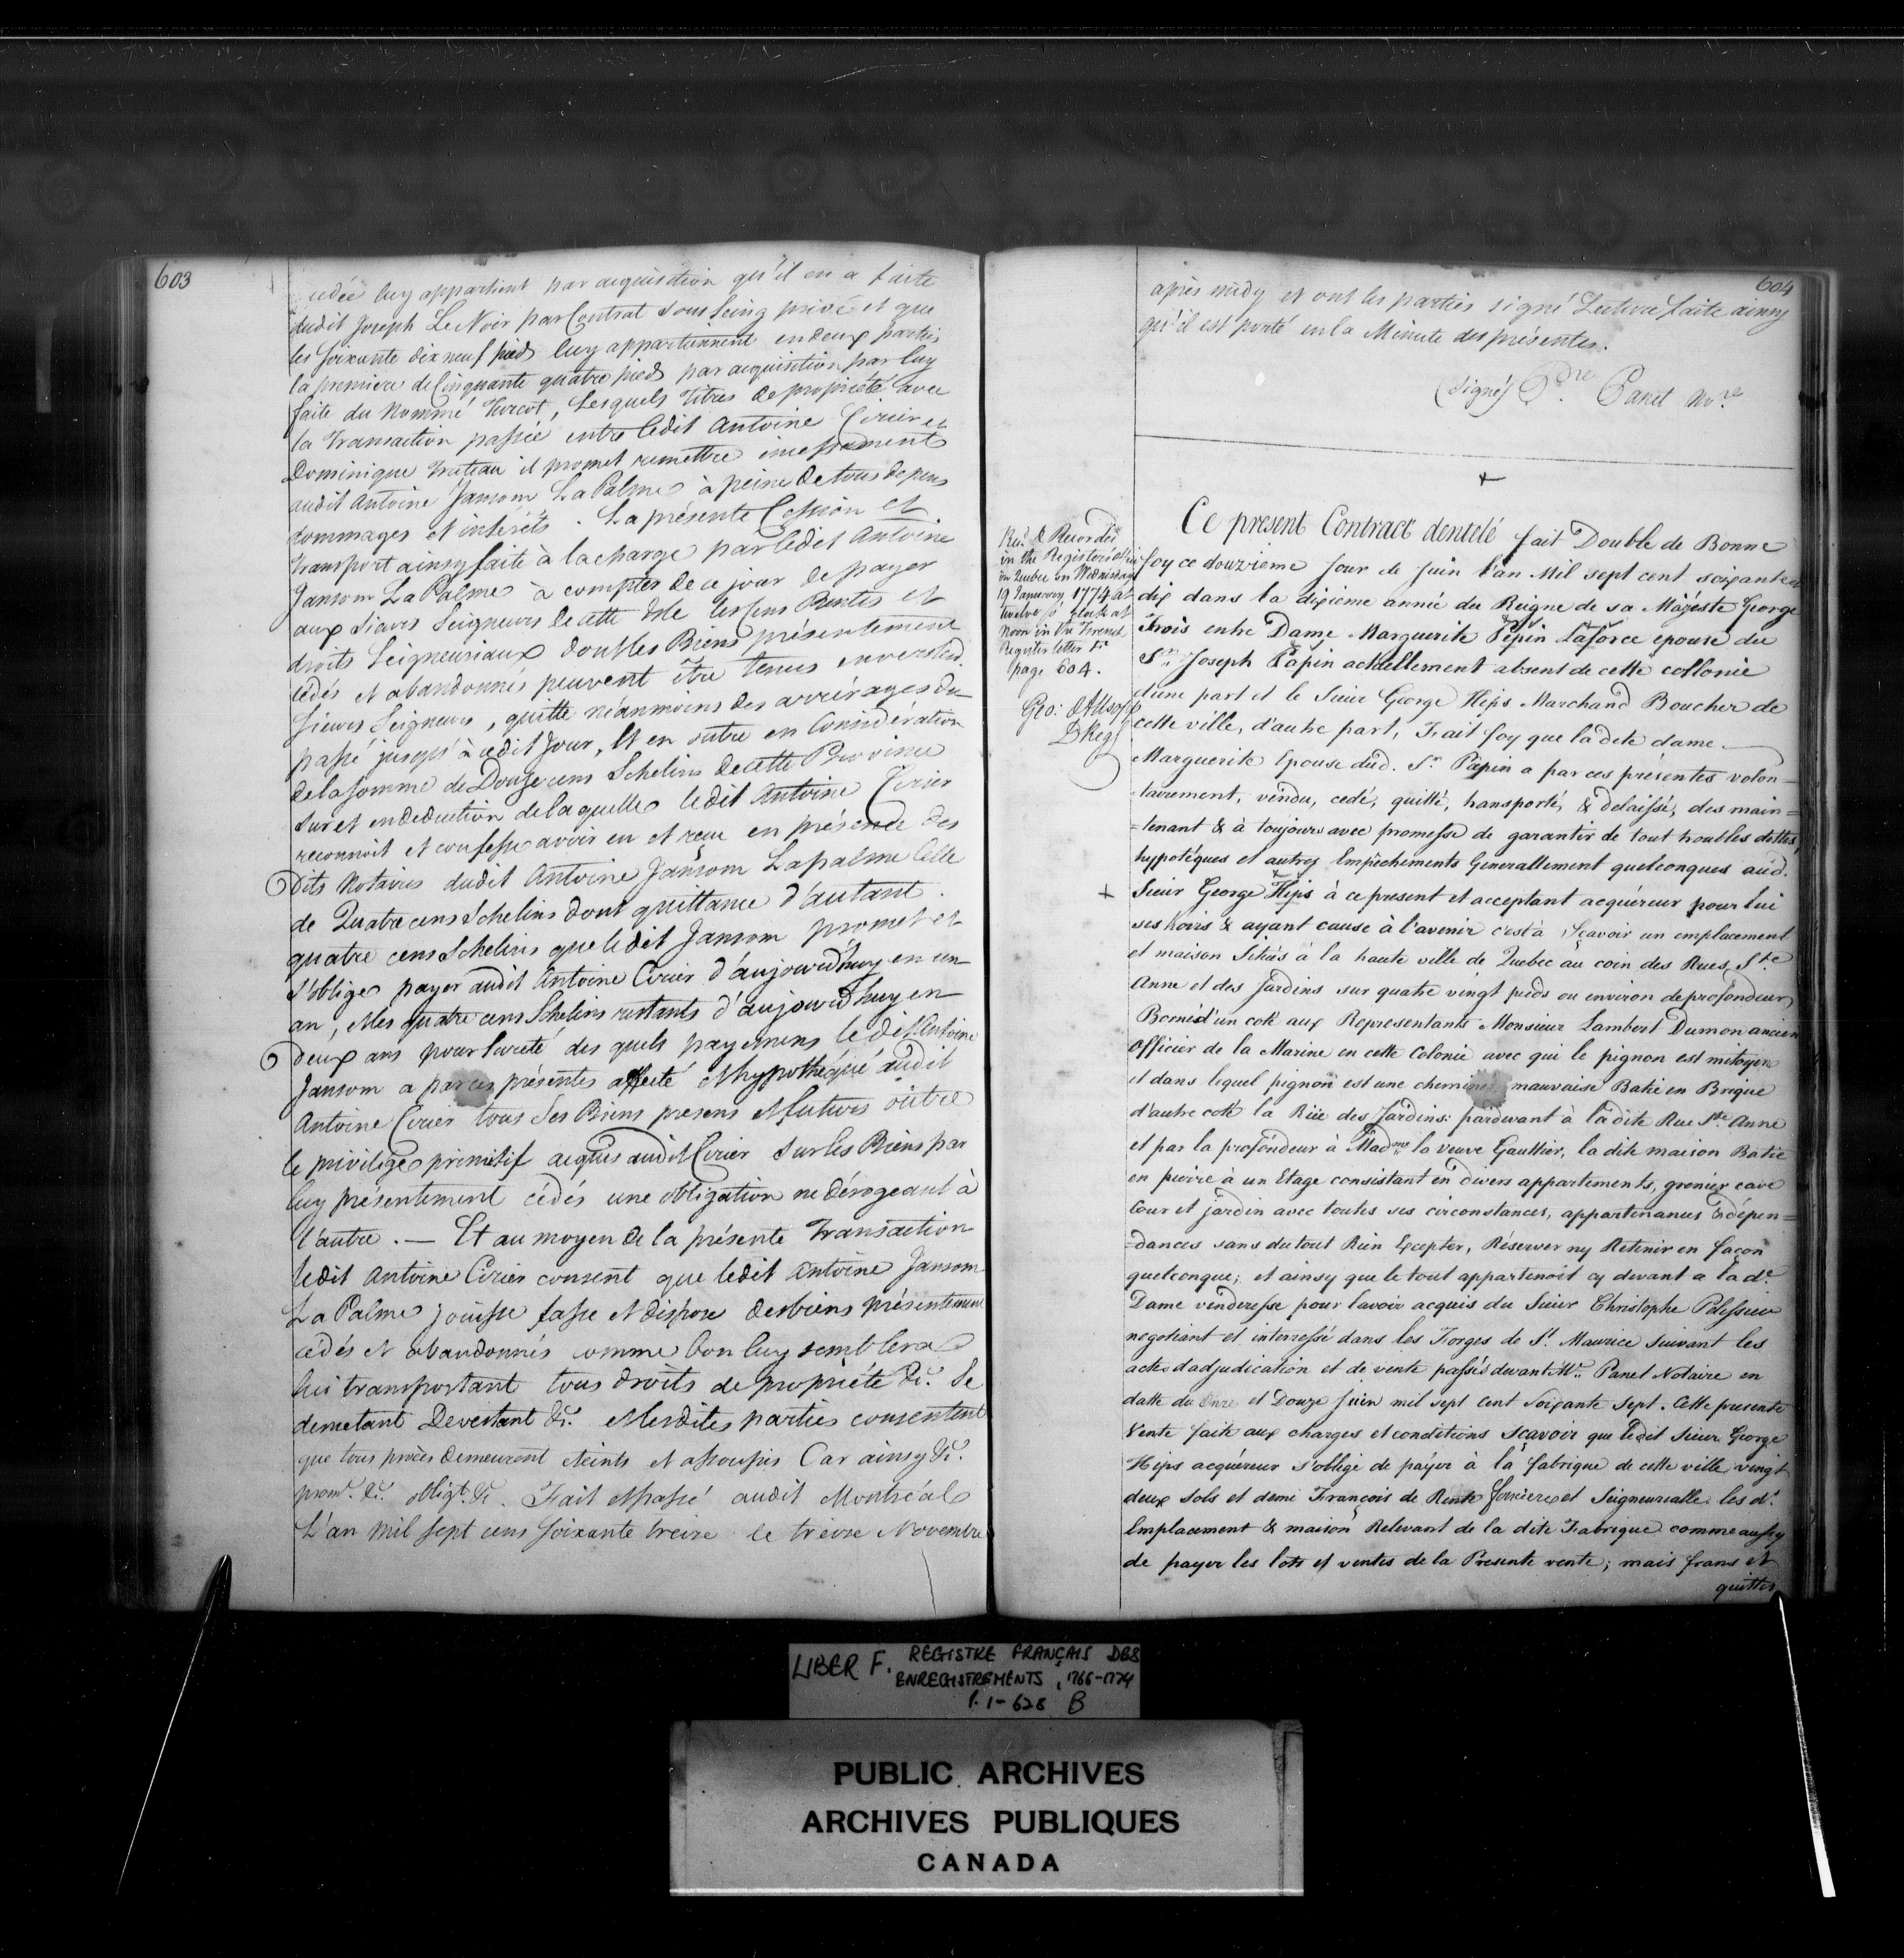 603
cédée luy appartient par acquisition qu'il en a faite
dudit Joseph Le Noir par Contrat sous seing privé et que
les soixante dix neuf pieds luy appartiennent en deux parties
la premiere de Cinquante quatre pieds par acquisition par luy
faite du Nommé Turcot, Lesquels Titres de propriété avec
la Transaction passée entre ledit Antoine Cirier et
Dominique Trateau il promet remettre incessament
audit Antoine Jansom La Palme à peine de tous depens
dommages et intérêts. La présente Cession et
Transport ainsy faite à la charge par ledit Antoine
Jansom La Palme à compter de ce jour de payer
aux Sieurs Seigneurs de cette Isle les Cens Rentes et
droits Seigneuriaux dont les Biens présentement
cédés et abandonnés peuvent être tenus envers lesd.
Sieurs Seigneurs, quitte néanmoins des arrérages du
passé jusqu'à cedit Jour, Et en outre en Considération
de la somme de Douze cens Schelins de cette Province
Sur et en deduction de laquelle ledit Antoine Cirier
reconnoit et confesse avoir eu et reçu en présence des
Dits Notaires dudit Antoine Jansom Lapalme Celle
de Quatre cens Schelins dont quittance d'autant.
quatre cens Schelins que ledit Jansom promet et
s'oblige payer audit Antoine Cirier d'aujourd'huy en un
an, et les quatre cens Schelins restants d'aujourd'huy en
deux ans pour sureté des quels payemens ledit Antoine
Jansom a par ces présentes affecté et hypothéqué audit
Antoine Cirier tous Ses Biens presens et futures outre
le privilège primitif acquis audit Cirier Sur les Biens par
luy présentement cédés une obligation ne dérogeant à
l'autre. — Et au moyen de la présente Transaction
ledit Antoine Cirier consent que ledit Antoine Jansom
La Palme jouisse fasse et dispose des biens présentement
cédés et abandonnés comme bon luy semblera
lui transportant tous droits de propriété &c. Se
demetant Devestant &c. et lesdites parties consentent
que tous procès demeurent éteints et assoupis Car ainsy &c.
prom.t &c. oblig.t &c. Fait et passé audit Montréal
L'an mil sept cens soixante treize le treize Novembre
604
après midy et ont les parties signé Lecture faite ainsy
qu'il est porté en la Minute des présentes.
(Signé) P.re Panet No.re
+
Rec.d & Recorded
in the Registers office
in Quebec on Wednesday
19 January 1774 at
twelve o'Clock at
Noon in the French
Register letter F
page 604.
Geo: Allsopp
D Reg.
Ce present Contract dentelé fait Double de Bonne
foy ce douzieme jour de Juin l'an Mil sept cent soixante et
dix dans la dixieme année du Reigne de sa Majéste George
Trois entre Dame Marguerite Pepin Laforce epouse du
S.r Joseph Papin actuellement absent de cette collonie
d'une part et le Sieur George Hips Marchand Boucher de
cette ville, d'autre part, Fait foy que la dite dame
Marguerite Epouse dud. S.r Papin a par ces présentes volon-
-tairement, vendu, cedé, quitté, transporté, & delaissé, des main=
=tenant & à toujours avec promesse de garantir de tout troubles dettes,
hypotéques et autres Empêchements Generallement quelconques aud.
+
Sieur George Hips à ce present et acceptant acquéreur pour lui
ses hoirs & ayant cause à l'avenir c'est à Scavoir un emplacement
et maison Situés à la haute ville de Quebec au coin des Rues S.te
Anne et des Jardins sur quatre vingt pieds ou environ de profondeur
Borné d'un coté aux Representants Monsieur Lambert Dumon ancien
Officier de la Marine en cette Colonie avec qui le pignon est mitoyen
et dans lequel pignon est une cheminée mauvaise Batie en Brique
d'autre coté la Rüe des Jardins: pardevant à la dite Rue S.te Anne
et par la profondeur à Mad.me la veuve Gaultier, la dite maison Batie
en pierre à un Etage consistant en divers appartements, grenier cave
Cour et jardin avec toutes ses circonstances, appartenances & dépen=
=dances sans du tout Rien Excepter, Réserver ny Retenir en façon
quelconque; et ainsy que le tout appartenoit cy devant a la d.e
Dame venderesse pour l'avoir acquis du Sieur Christophe Pelissier
negotiant et interressé dans les Forges de S.t Maurice Suivant les
actes d'adjudication et de vente passés devant M.e Panet Notaire en
datte du Onze et Douze Juin mil sept cent soixante sept. Cette presente
Vente faite aux charges et conditions sçavoir que ledit Sieur George
Hips acquéreur s'oblige de payer à la fabrique de cette ville vingt
deux sols et demi François de Rente foncière et Seigneurialle les d.t
Emplacement & maison Relevant de la dite Fabrique comme aussy
de payer les lots et ventes de la Presente vente; mais francs et
quittes
LIBER F. REGISTRE FRANÇAIS DES
ENREGISTREMENTS, 1766-1774
P. 1-628 B
PUBLIC ARCHIVES
ARCHIVES PUBLIQUES
CANADA